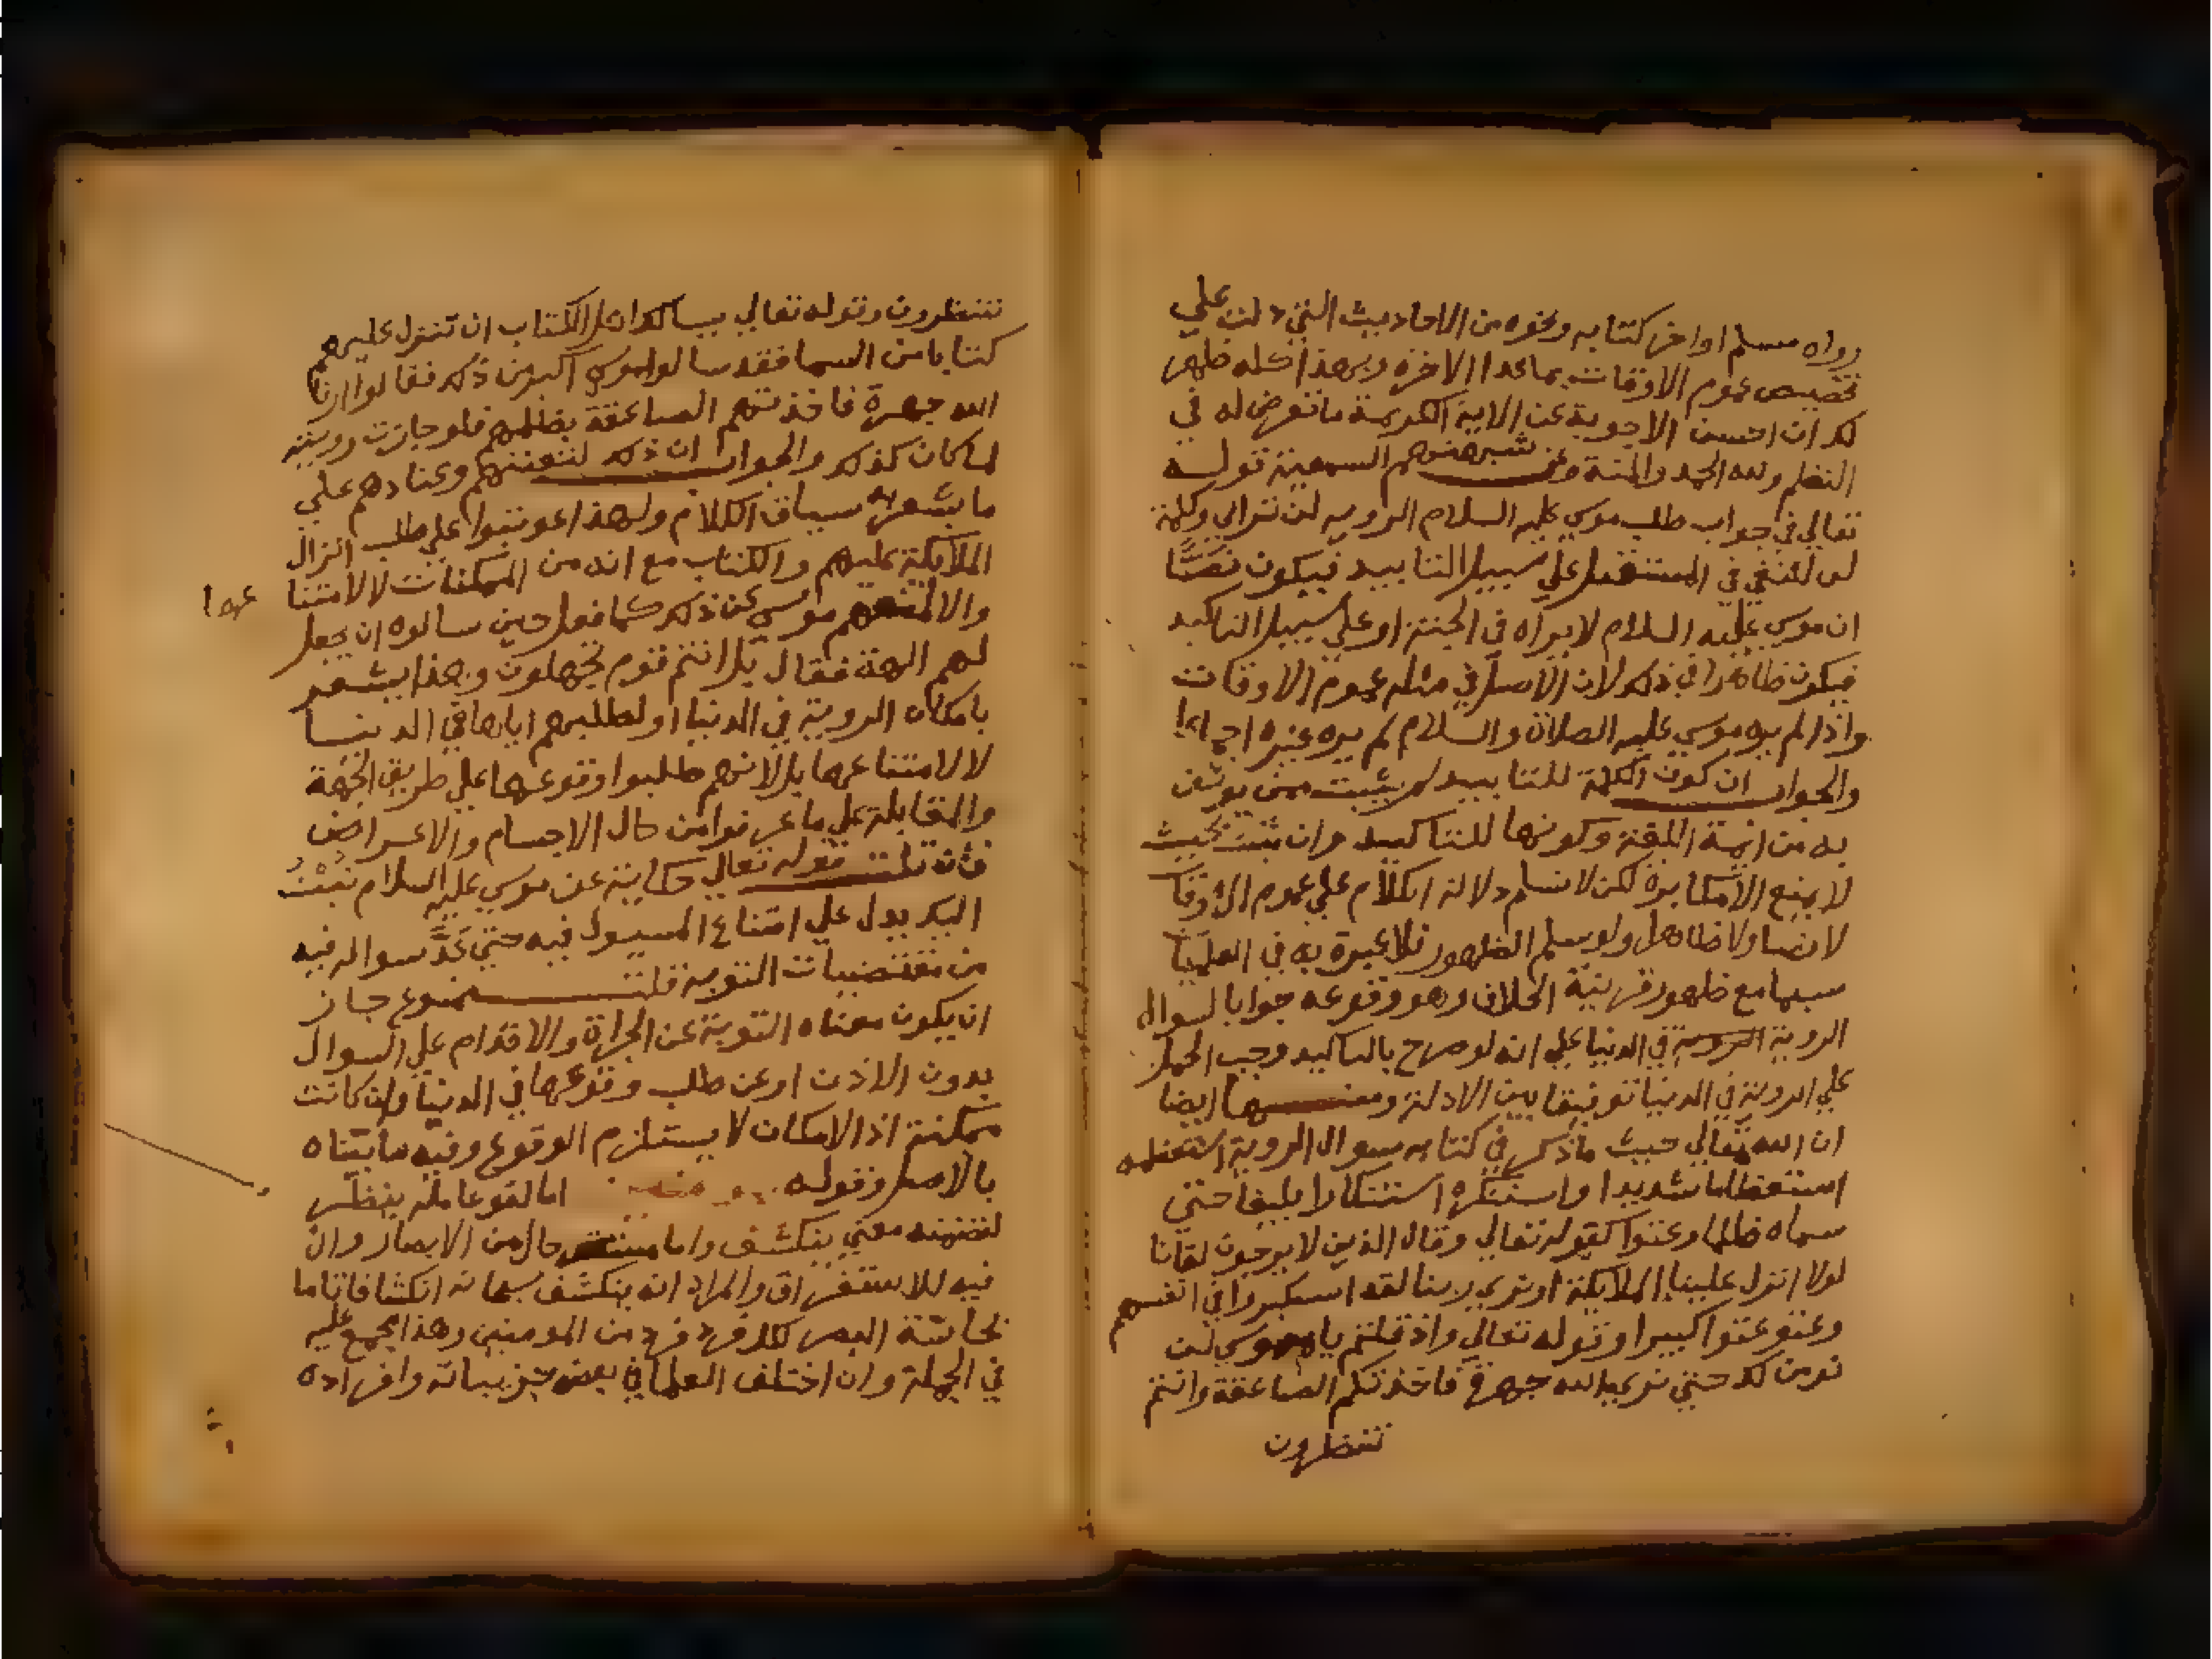 رواه مسلم اواخر كتابه ونحوه من الاحاديث التي دلت علي
تخصيص عموم الاوقات بما عدا الاخرة وبهذا كله ظهر
لك ان احسن الاجوبة عن الاية الكريمة ما تعرض له في
النظم ولله الحمد والمنة ومن شبههم السمعية قوله
تعالي في جواب طلب موسي عليه السلام الروية لن تراني وكلمة
لن لنفي في المستقبل علي سبيل التابيد فيكون نصًّا
ان موسي عليه السلام لا يراه في الجنة او علي سبيل التاكيد
فيكون ظاهرا في ذلك لان الاصل في مثله عموم الاوقات
واذا لم يره موسي عليه الصلاة والسلام لم يره غيره اجماعا
والجواب ان كون الكلمة للتابيد لم يثبت ممن يوثق
به من ايمة اللغة وكونها للتاكيد وان ثبت بحيث
لا يمنع الا مكابرة لكن لا نسلم دلالة الكلام علي عموم الاوقا
لا نصا ولا ظاهرا ولو سلم الظهور فلا عبرة به في العلميا
سيما مع ظهور قرينة الخلاف وهو وقوعه جوابا لسوال
الروية في الدنيا علي انه لو صرح بالتاكيد وجب الحمل
علي الروية في الدنيا توفيقا بين الادلة ومنها ايضا
ان الله تعالي حيث ما ذكر في كتابه سوال الروية استعظمه
استعظاما شديدا واستنكره استنكارا بليغا حتي
سماه ظلما وعتوا كقوله تعالي وقال الذين لا يرجون لقانا
لولا انزل علينا الملايكة او نري ربنا لقد استكبروا في انفسهم
وعتو عتوا كبيرا وقوله تعالي واذ قلتم يا موسي لن
نومن لك حتي نري الله جهرة فاخذتكم الصاعقة وانتم
تنظرون
تنظرون وقوله تعالي يسالك اهل الكتاب ان تنزل عليهم
كتابا من السما فقد سالوا موسي اكبر من ذلك فقالوا ارنا
الله جهرة فاخذتهم الصاعقة بظلمهم فلو جازت رويته
لما كان كذلك والجواب ان ذلك لتعنتهم وعنادهم علي
ما يشعر به سياق الكلام ولهذا عوتبوا علي طلب انزال
الملايكة عليهم والكتاب مع انه من الممكنات لا لامتنا
عها
والا لمنعهم موسي عن ذلك كما فعل حين سالوه ان يجعل
لهم الهة فقال بل انتم قوم تجهلون وهذا يشعر
بامكان الروية في الدنيا او لطلبهم اياها في الدنيا
لا لامتناعها بل لانهم طلبوا وقوعها علي طريق الجهة
والمقابلة علي ما عرفوا من حال الاجسام والاعراض
فان قلت قوله تعالي حكاية عن موسي عليه السلام تُبْتُ
اليك يدل علي امتناع المسيول فيه حتي عَدَّ سواله فيه
من مقتضيات التوبة قلت ممنوع جاز
ان يكون معناه التوبة عن الجراة والاقدام علي السوال
بدون الاذن او عن طلب وقوعها في الدنيا وان كانت
ممكنة اذ الامكان لا يستلزم الوقوع وفيه ما بيناه
بالاصل وقوله اما لغو عامله ينظر
لتضمنه معني ينكشف واما حال من الابصار وان
فيه للاستغراق والمراد انه ينكشف سبحانه انكشافا تاما
لحاسة البصر لكل فرد فرد من المومنين وهذا مجمع عليه
في الجملة وان اختلف العلما في بعض جزيياته وافراده